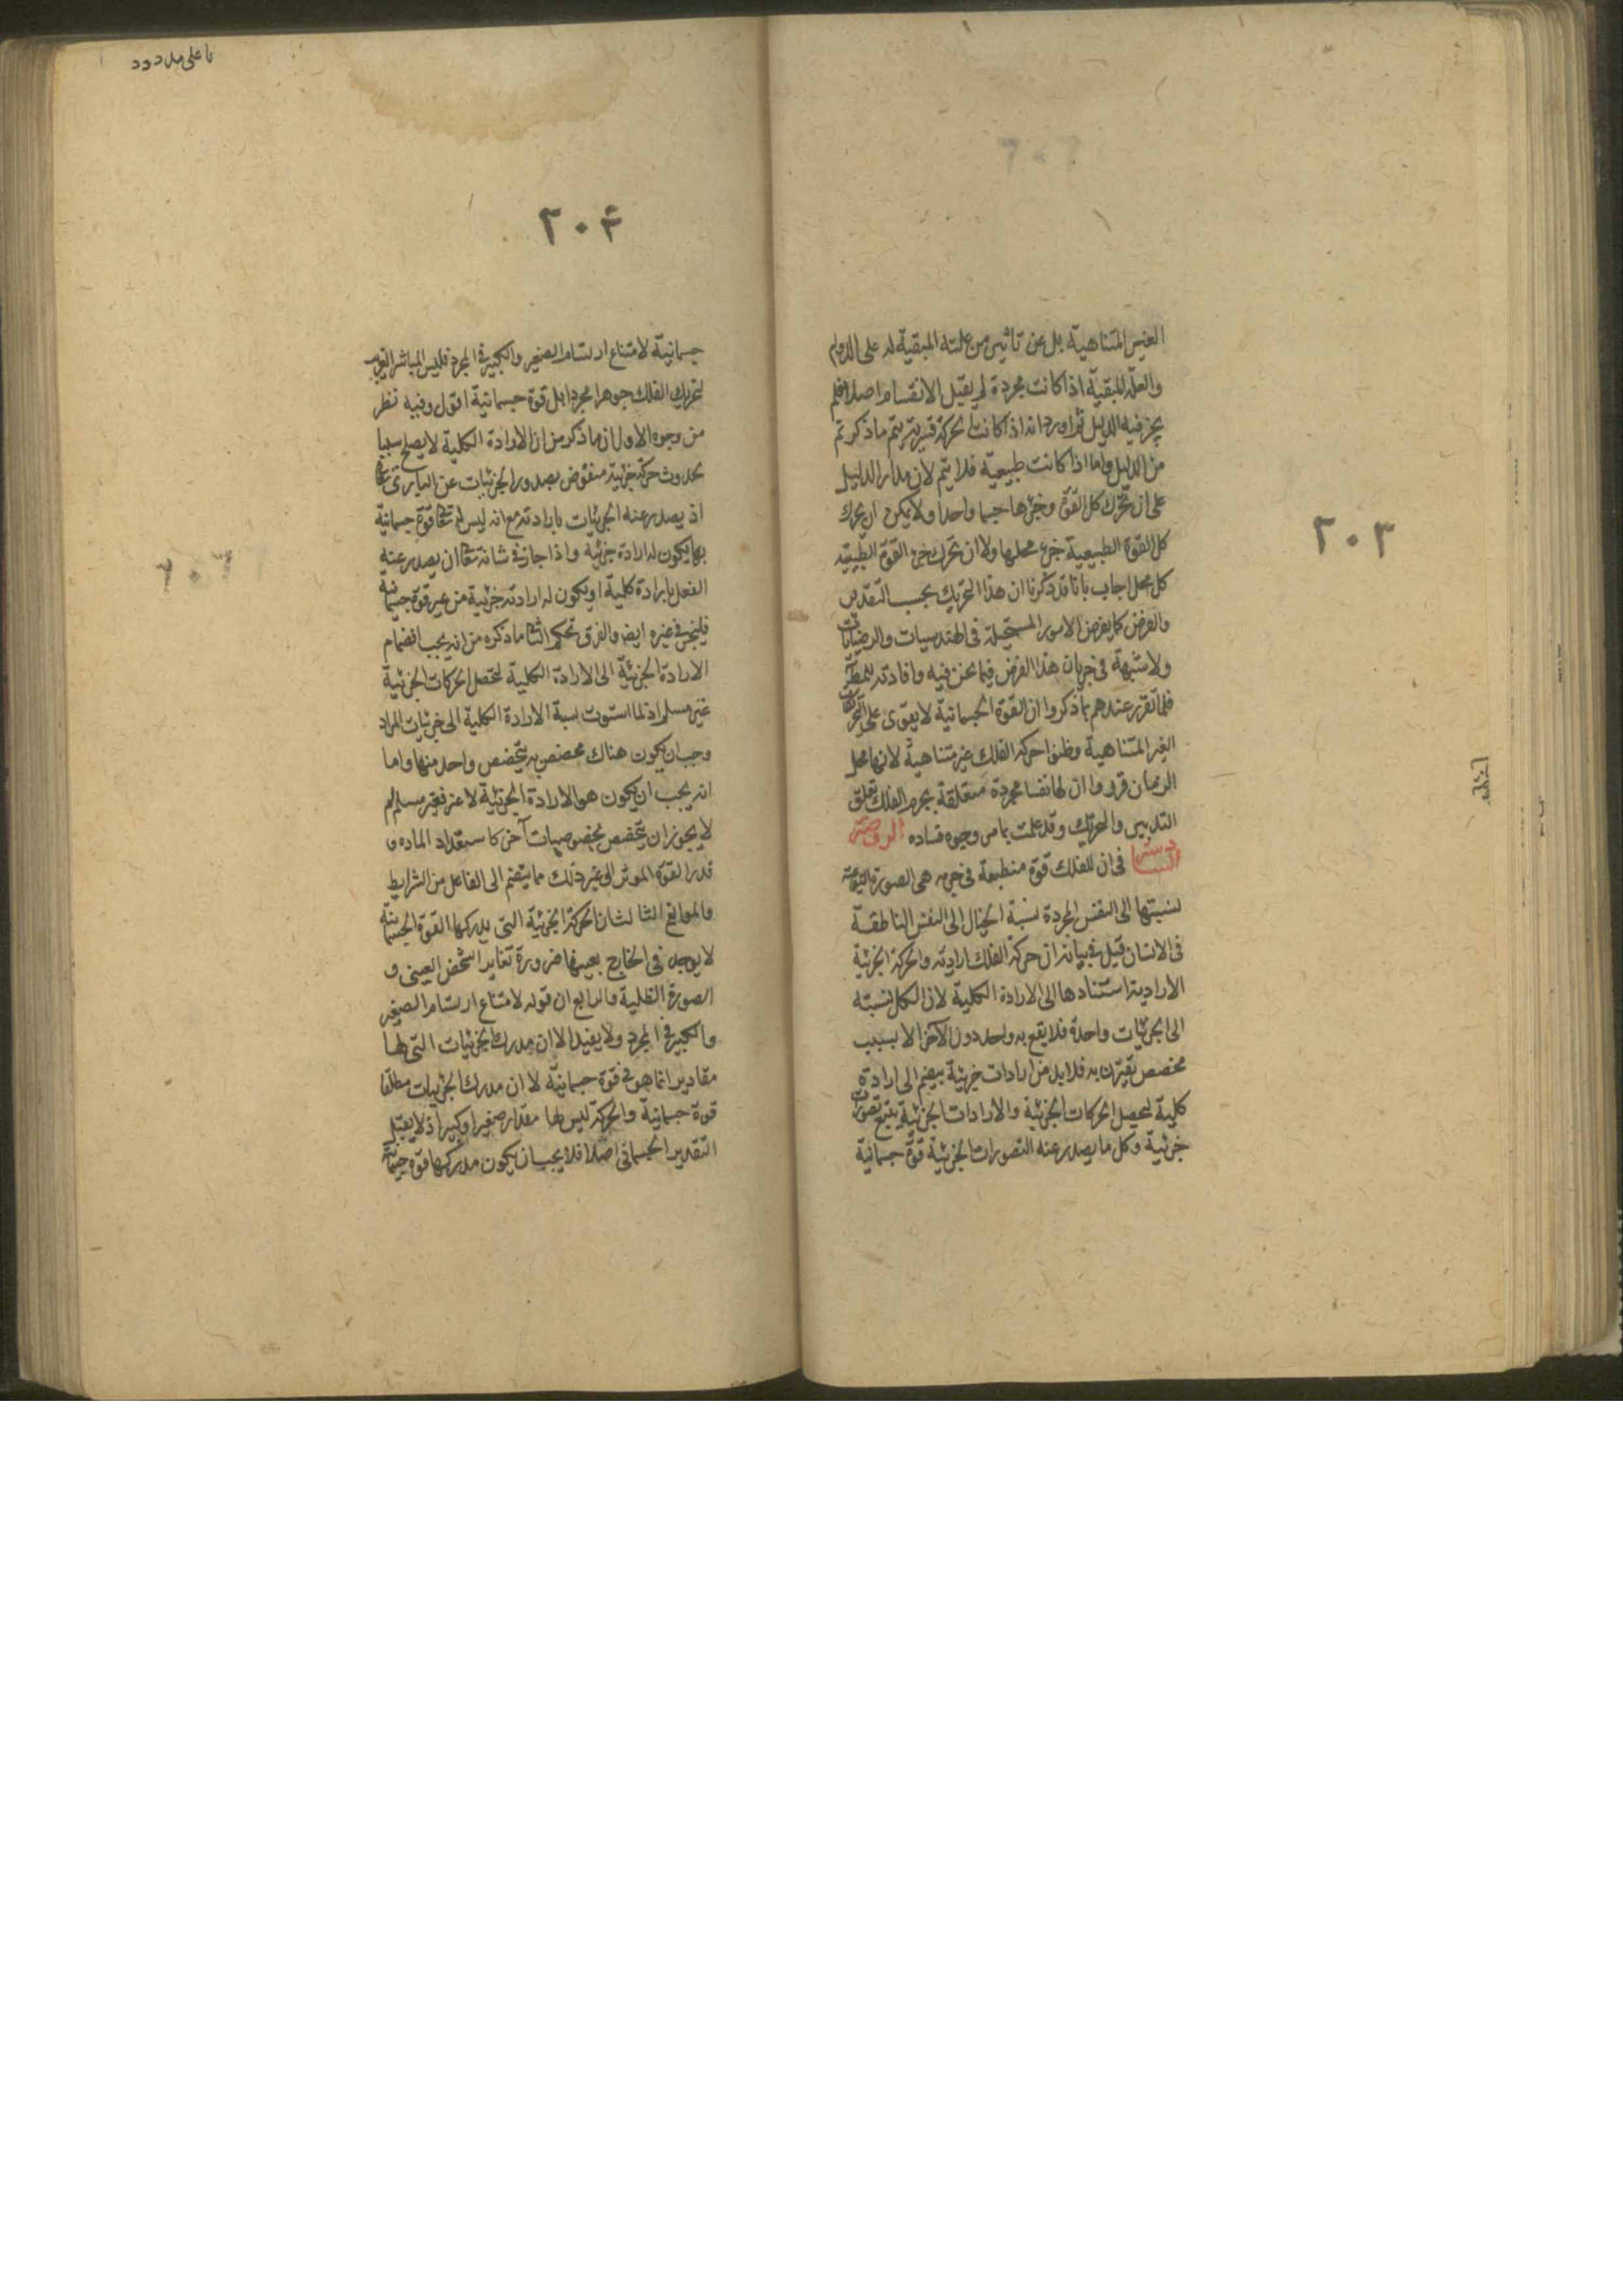 ٢٠٣
الغير المتناهية بل عن تاثير من علته المبقية له على الدوام
والعلة المبقية اذا كانت مجردة لم يقبل الانقسام اصلا فلم
يجز فيه الدليل ثم اورد انه اذا كانت الحركة قسرية يتم ما ذكرتم
من الدليل واما اذا كانت طبيعية فلا يتم لان مدار الدليل
على ان تحرك كل القوة وجزءها جسما واحدا ولا يمكن ان يحرك
كل القوة الطبيعية جزء محلها ولا ان تحرك جزء القوة الطبيعية
كل محل اجاب بانا قد ذكرنا ان هذا التحريك بحسب التقدير
والفرض كما يفرض الامور المستحيلة في الهندسيات والرياضيات
ولا شبهة في جريان هذا الفرض فيما نحن فيه وافادته للمط
فلما تقرر عندهم بما ذكروا ان القوة الجسمانية لا يقوى على التحريكات
الغير المتناهية وظنوا حركة الفلك غير متناهية لانها محل
الزمان قرروا ان لها نفسا مجردة متعلقة بجرم الفلك تعلق
التدبير والتحريك وقد علمت بما مر وجوه فساده الروضة
السادسة في ان للفلك قوة منطبعة في جرمه هى الصورة النوعية
نسبتها الى النفس المجردة نسبة الخيال الى النفس الناطقة
فى الانسان قيل في بيانه ان حركة الفلك ارادية والحركة الجزئية
الارادية استنادها الى الارادة الكلية لان الكل نسبته
الى الجزئيات واحدة فلا يقع به واحد دون الآخر الا بسبب
مخصص يقترن به فلا بد من ارادات جزئية ينضم الى ارادة
كلية لتحصل الحركات الجزئية والارادات الجزئية يتبع تصورات
جزئية وكل ما يصدر عنه التصورات الجزئية قوة جسمانية
يا على مدد
٢٠٤
جسمانية لامتناع ارتسام الصغير والكبير في المجرد فليس المباشر القريب
لتحريك الفلك جوهرا مجردا بل قوة جسمانية اقول وفيه نظر
من وجوه الاول ان ما ذكر من ان الارادة الكلية لا يصلح سببا
لحدوث حركة جزئية منقوض بصدور الجزئيات عن البارى تعا
اذ يصدر عنه الجزئيات بارادته مع انه ليس له تعا قوة جسمانية
بها يكون له ارادة جزئية واذا جاز في شانه تعا ان يصدر عنه
الفعل بارادة كلية او يكون له ارادته جزئية من غير قوة جسمانية
فليجز في غيره ايضا والفرق تحكم الثانى ما ذكره من انه يجب انضمام
الارادة الجزئية الى الارادة الكلية لتحصل الحركات الجزئية
غير مسلم اذ لما استوت نسبة الارادة الكلية الى جزئيات المراد
وجب ان يكون هناك مخصص به يتخصص واحد منها واما
انه يجب ان يكون هو الارادة الجزئية لا غير فغير مسلم لم
لا يجوز ان يتخصص بخصوصيات آخر كاستعداد المادة و
قدر القوة الموثر او غير ذلك مما ينضم الى الفاعل من الشرايط
والموانع الثالث ان الحركة الجزئية التى يدركها القوة الجسمانية
لا يوجد فى الخارج بعينها ضرورة تغاير الشخص العينى و
الصورة الظلية والرابع ان قوله لامتناع ارتسام الصغير
والكبير في المجرد ولا يفيد الا ان مدرك الجزئيات التى لها
مقادير انما هو في قوة جسمانية لا ان مدرك الجزئيات مطلقا
قوة جسمانية والحركة ليس لها مقدار صغير او كبير اذ لا يقبل
التقدير الجسمانى اصلا فلا يجب ان يكون مدركها قوة جسمانية